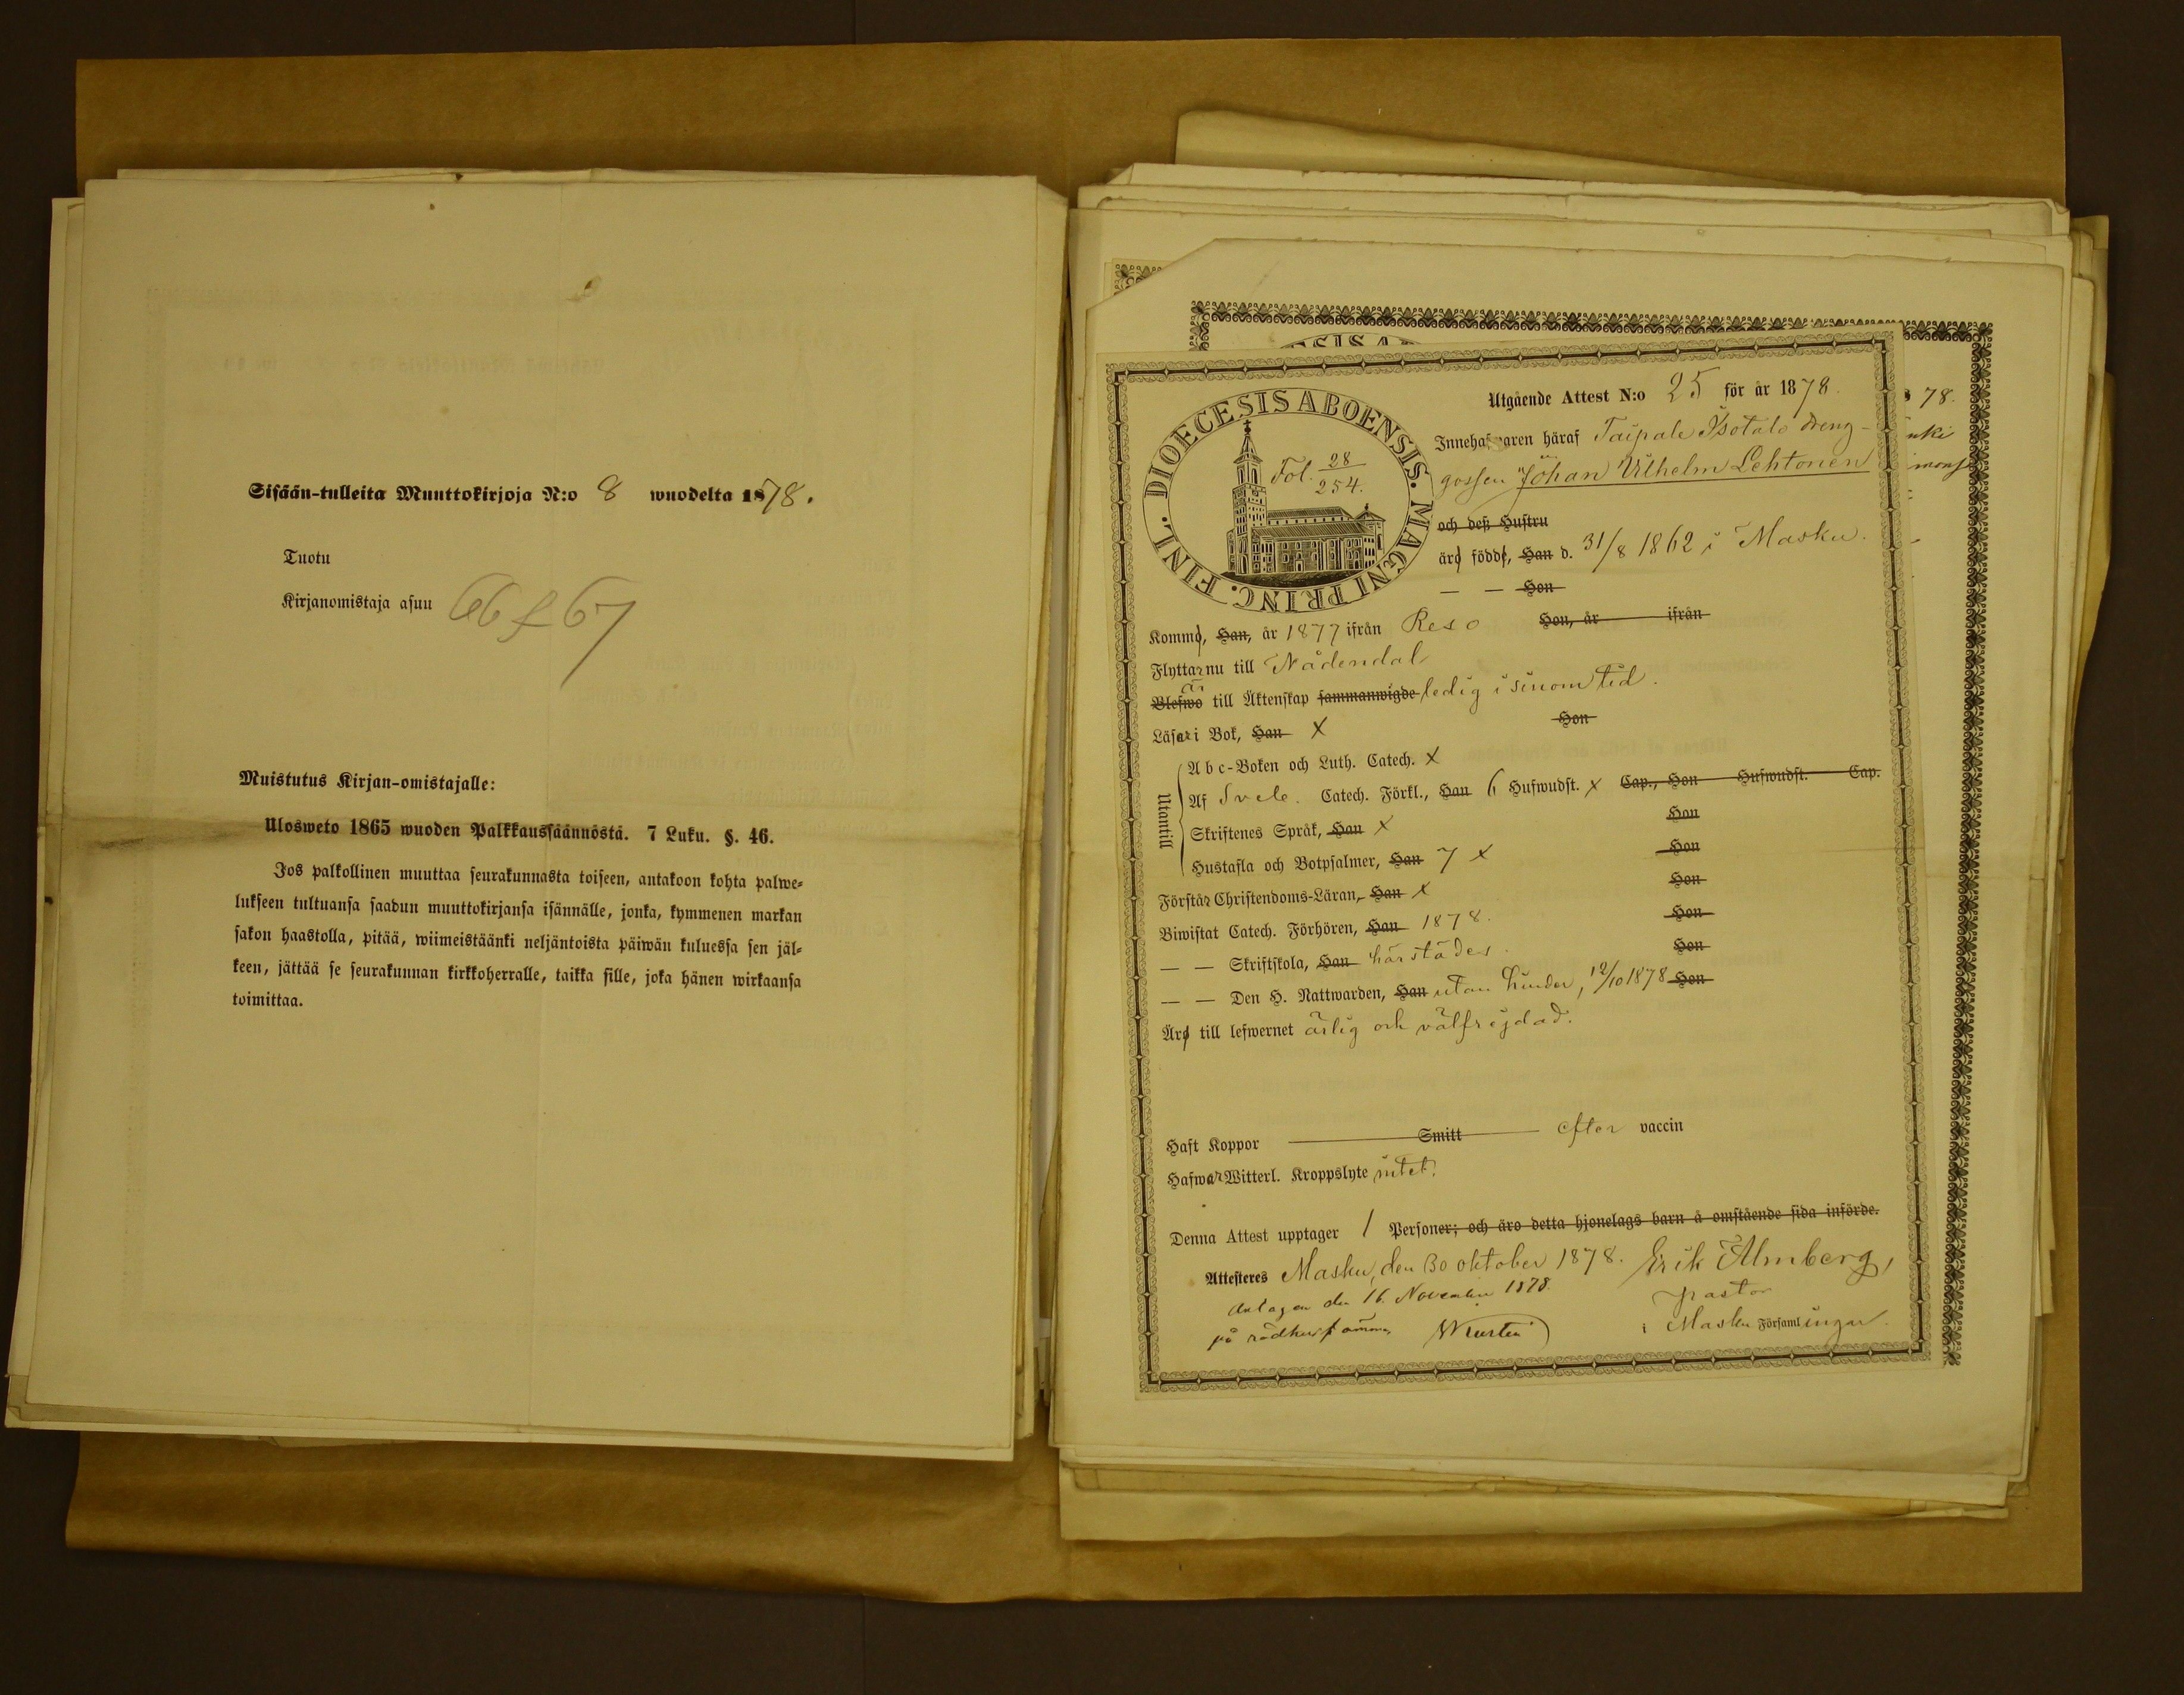 Sisään-tulleita Muuttokirjoja N:o 8 wuodelta 1878.
Tuotu
Kirjanomistaja asuu 66 f 67
Muistutus Kirjan-omistajalle:
Ulosweto 1865 wuoden Palkkaussäännöstä. 7 Luku. §. 46.
Jos palkollinen muuttaa seurakunnasta toiseen, antakoon kohta palwe-
lukseen tultuansa saadun muuttokirjansa isännälle, jonka, kymmenen markan
sakon haastolla, pitää, wiimeistäänki neljäntoista päiwän kuluessa sen jäl-
keen, jättää se seurakunnan kirkkoherralle, taikka sille, joka hänen wirkaansa
toimittaa.
DIOECESIS ABOENSIS. MAGNI PRINC. FINL.
Fol. 28
254.
Utgående Attest N:o 25 för år 1878.
Innehafwaren häraf Taipale Isotalo dreng-
gossen Johan Wilhelm Lehtonen
och deß Hustru
äro födde, Han d. 31/8 1862 i Masku.
— — Hon
Kommo, Han, år 1877 ifrån Reso Hon, år ifrån
Flyttar nu till Nådendal
är
Blefwo till Äktenskap sammanwigde ledig i sinom tid.
Läsa i Bok, Han X Hon
Utantill
Abc-Boken och Luth. Catech. X
Af Svele. Catech. Förkl., Han 6 Hufwudst. X Cap., Hon Hufwudst. Cap.
Skriftenes Språk, Han X Hon
Hustafla och Botpsalmer, Han 7 X Hon
Förstår Christendoms-Läran, Han X Hon
Biwistat Catech. Förhören, Han 1878. Hon
— — Skriftskola, Han härstädes. Hon
— — Den H. Nattwarden, Han utan hinder, 12/10 1878 Hon
Äro till lefwernet ärlig och välfrejdad.
Haft Koppor Smitt efter vaccin
Hafwa Witterl. Kroppslyte intet.
Denna Attest upptager 1 Personer; och äro detta hjonelags barn å omstående sida införde.
Attesteres Masku, den 30 oktober 1878. Erik Almberg,
pastor
i Masku Församlingar.
Antagen den 16. November 1878.
på rådhus
78.